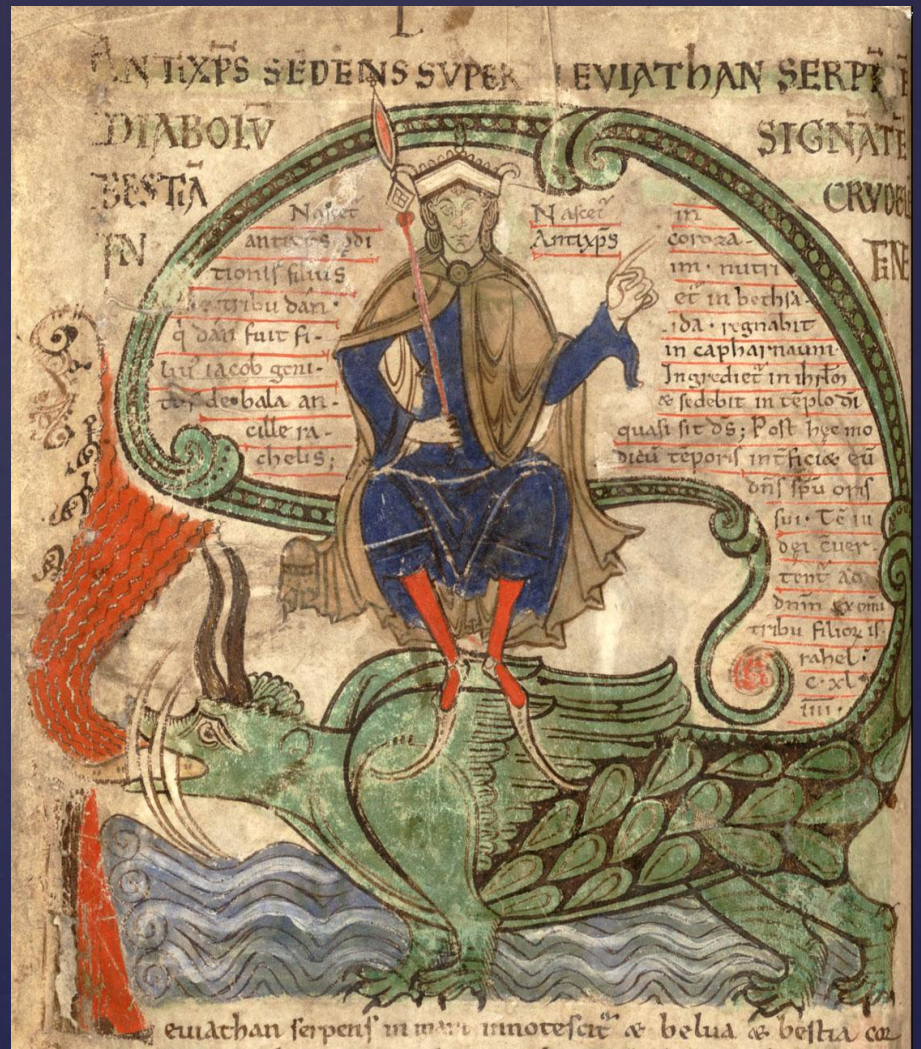 L
ANTIXP̄S SEDENS SVPER LEVIATHAN SERPE
DIABOLV̄ SIGNĀTĒ
BESTIĀ CRVDEL
IN FINE
Nascet᷑
antixp̄s ꝑdi
tionis filius
de tribu dan·
q̄ dan fuit fi-
lius iacob geni-
tus de bala an-
cille ra-
chelis;
Nascet᷑ in
Antixp̄s coroza-
im· nutri
et᷑ in bethsa-
ida· regnabit
in capharnaum·
Ingrediet᷑ in ihrl̄m
& sedebit in tēplo dī
quasi sit dс̄; Post hęc mo
dicū tēporis int̄ficiæ eū
dn̄s sp̄u oris
sui· Tc̄ iu
dęi c̄uer-
tent᷑ ad
dn̄m ex omī
tribu filioꝝ is
rahel·
c·xl
iiii·
euiathan serpens in mari innotescit᷑ & belua & bestia cor